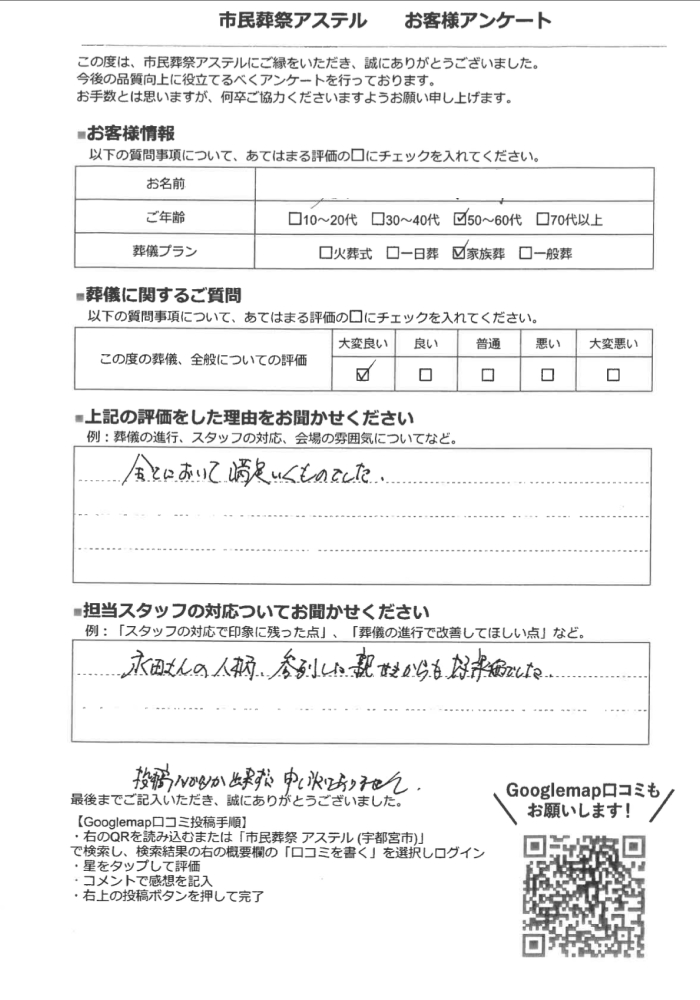 市民葬祭アステル　　お客様アンケート
この度は、市民葬祭アステルにご縁をいただき、誠にありがとうございました。
今後の品質向上に役立てるべくアンケートを行っております。
お手数とは思いますが、何卒ご協力くださいますようお願い申し上げます。
■お客様情報
以下の質問事項について、あてはまる評価の□にチェックを入れてください。
お名前
ご年齢 □10～20代 □30～40代 ☑50～60代 □70代以上
葬儀プラン □火葬式 □一日葬 ☑家族葬 □一般葬
■葬儀に関するご質問
以下の質問事項について、あてはまる評価の□にチェックを入れてください。
大変良い 良い 普通 悪い 大変悪い
この度の葬儀、全般についての評価 ☑ □ □ □ □
■上記の評価をした理由をお聞かせください
例：葬儀の進行、スタッフの対応、会場の雰囲気についてなど。
において満足いくものでした.
■担当スタッフの対応ついてお聞かせください
例：「スタッフの対応で印象に残った点」、「葬儀の進行で改善してほしい点」など。
永田さんの人柄、参列した親せきからも好評価でした.
投稿 出来ずに申し訳ありません.
最後までご記入いただき、誠にありがとうございました。
【Googlemap口コミ投稿手順】
・右のQRを読み込むまたは「市民葬祭 アステル (宇都宮市)」
で検索し、検索結果の右の概要欄の「口コミを書く」を選択しログイン
・星をタップして評価
・コメントで感想を記入
・右上の投稿ボタンを押して完了
Googlemap口コミも
お願いします！